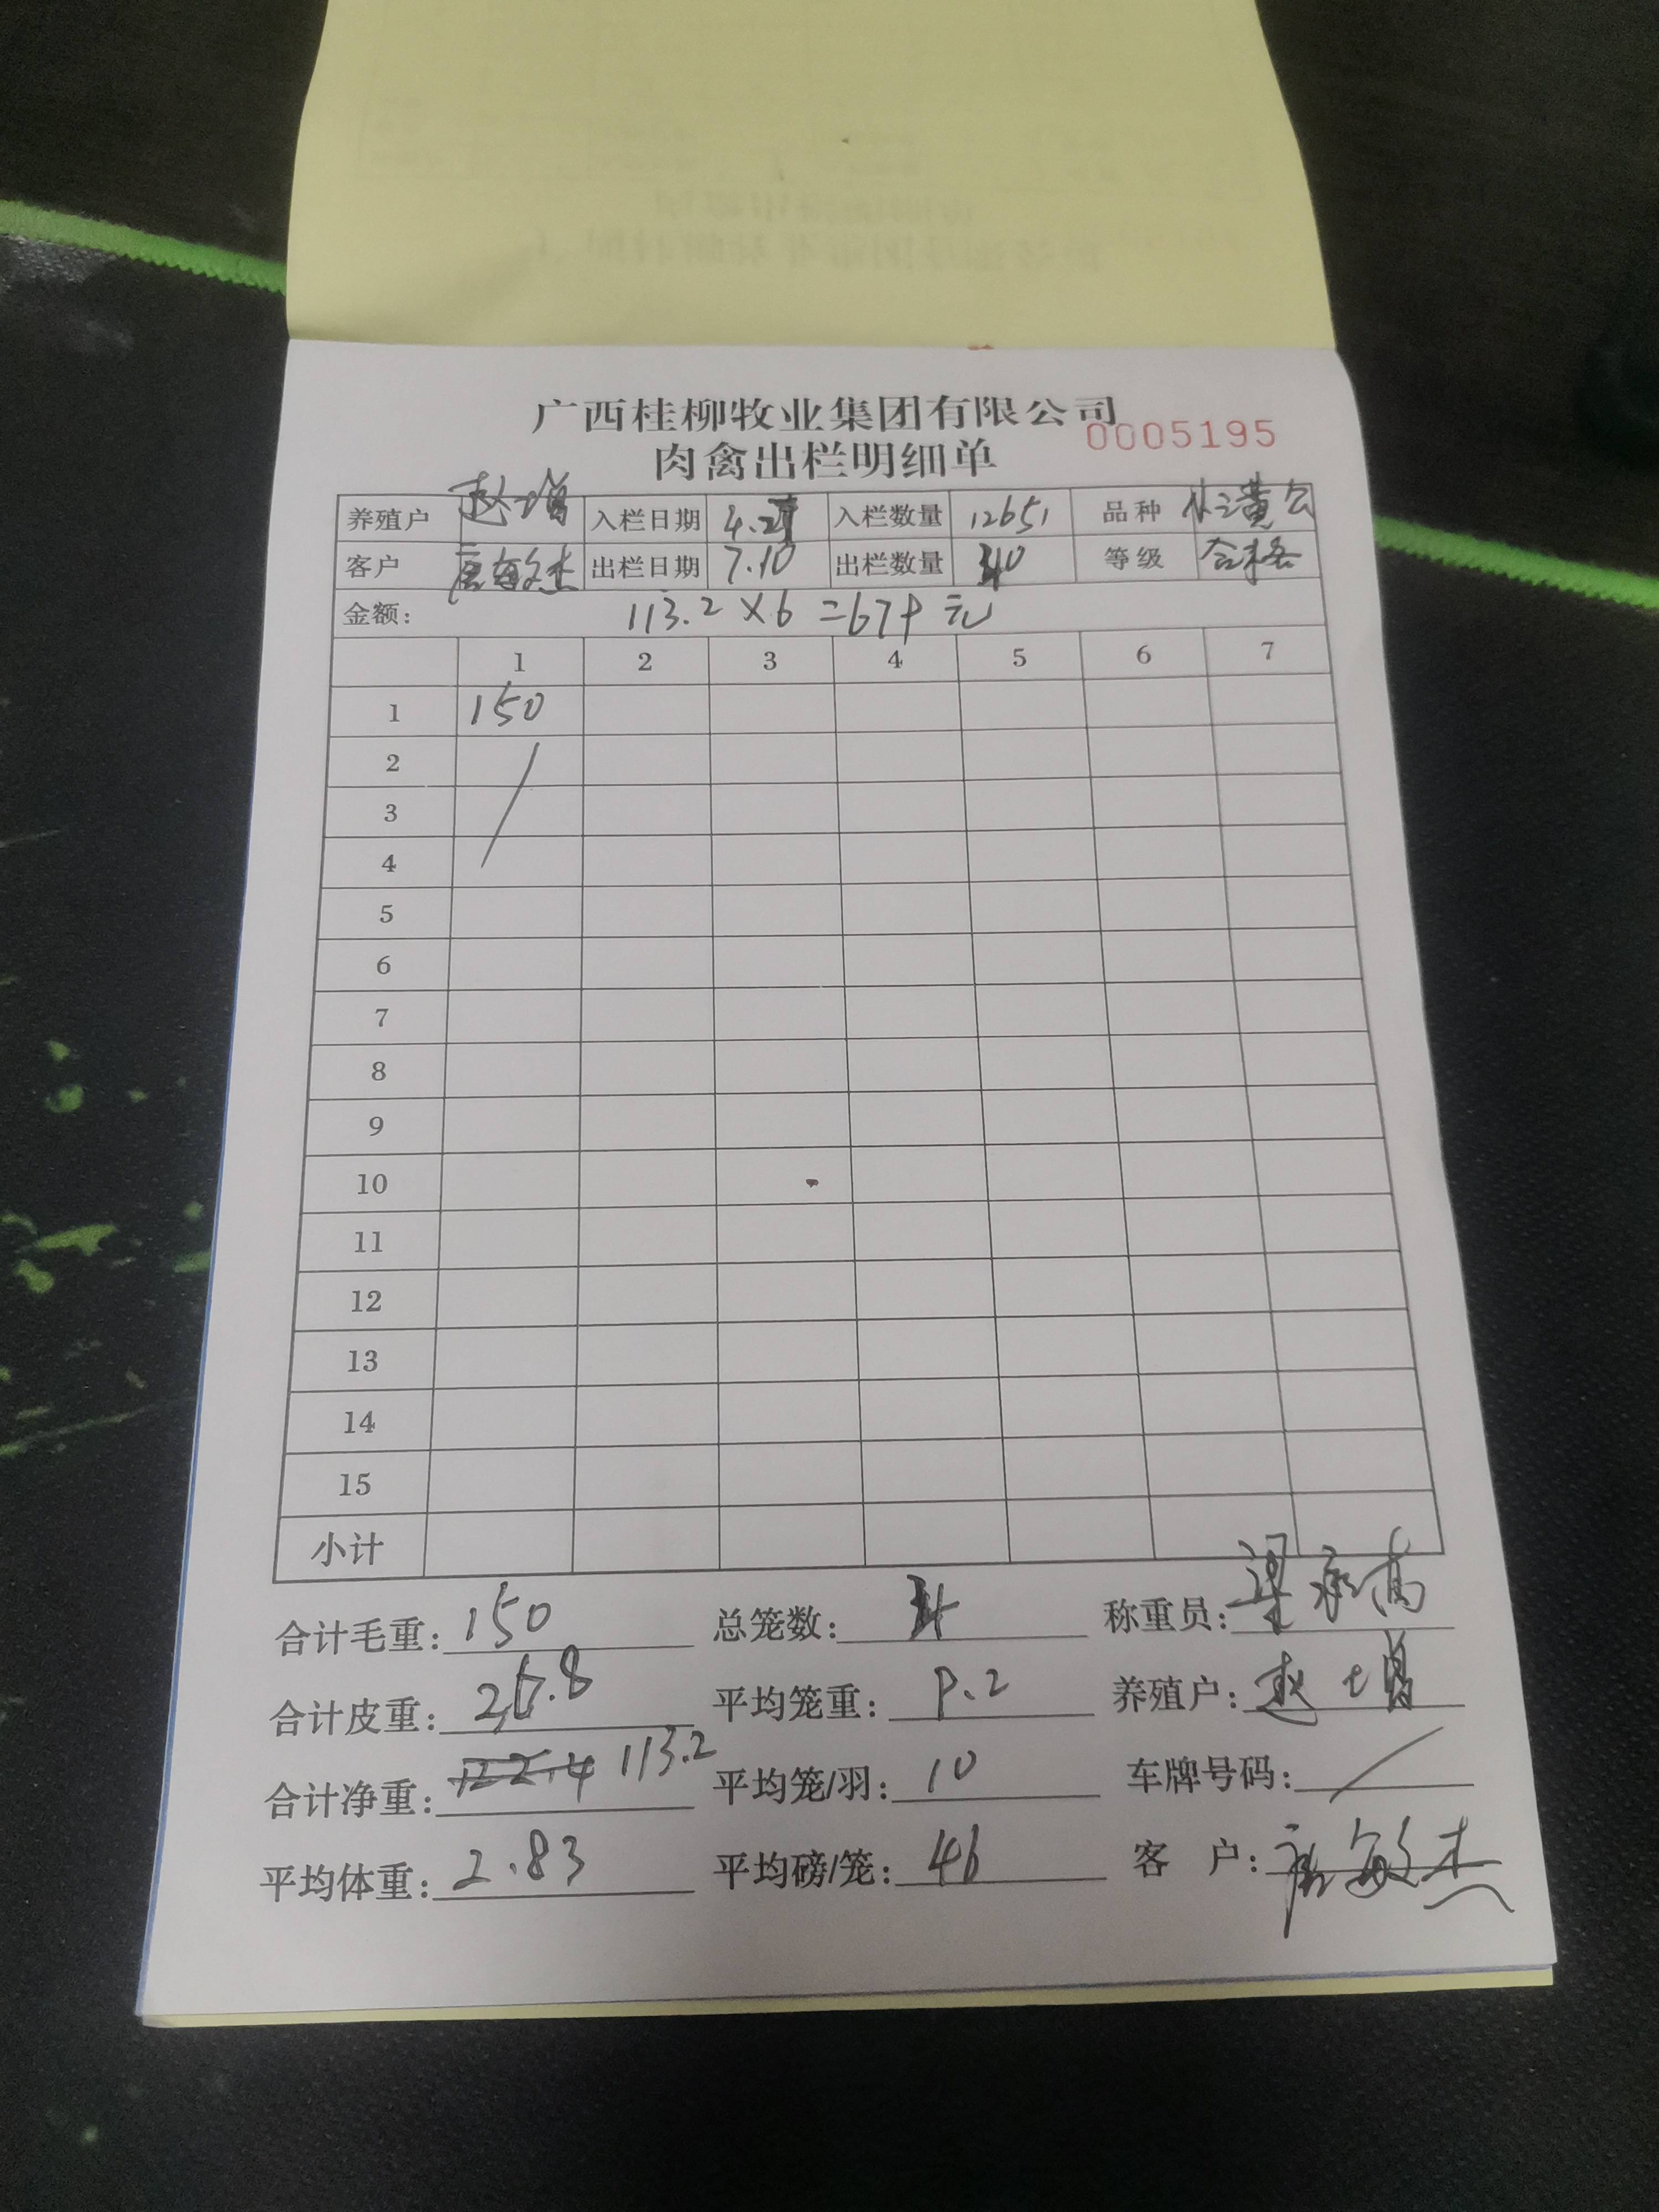 广西桂柳牧业集团有限公司
0005195
肉禽出栏明细单
养殖户 赵增 入栏日期 4. 入栏数量 12651 品种 黄公
客户 唐敏杰 出栏日期 7.10 出栏数量 40 等级 合格
金额: 113.2×6=679元
1 2 3 4 5 6 7
1 150
2
3
4
5
6
7
8
9
10
11
12
13
14
15
小计
合计毛重: 150 总笼数: 4 称重员: 梁承高
合计皮重: 36.8 平均笼重: 9.2 养殖户: 赵增
合计净重: 122.4 113.2 平均笼/羽: 10 车牌号码:
平均体重: 2.83 平均磅/笼: 46 客 户: 唐敏杰